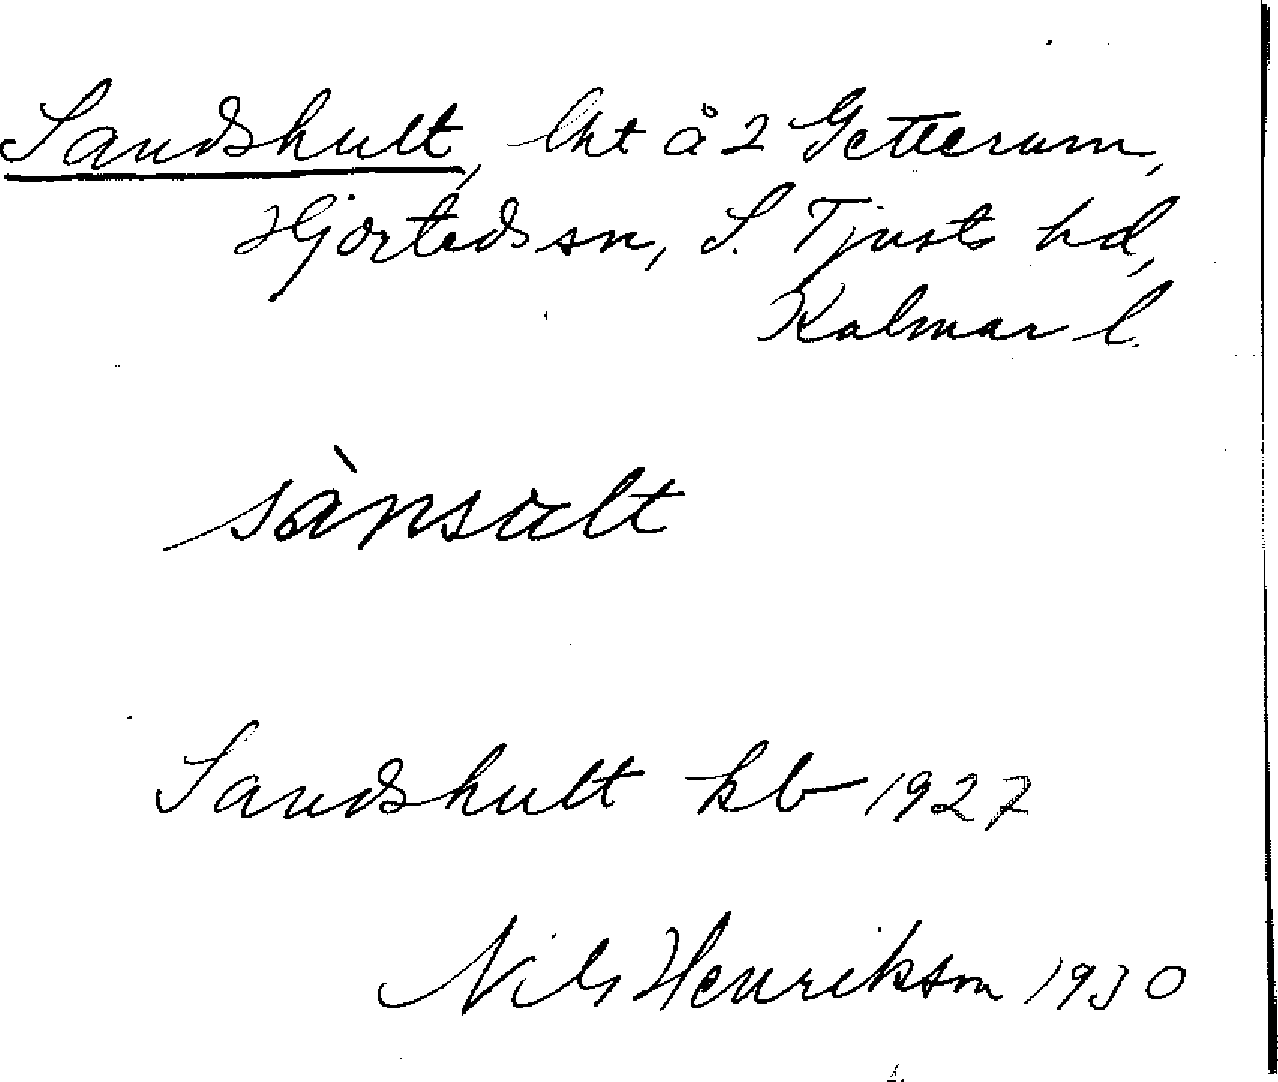 Sandshult, lht å 2 Getterum,
Hjorteds sn, S. Tjusts hd,
Kalmar l.
sànsult
Sandshult kb 1927
Nils Henrikson 1930